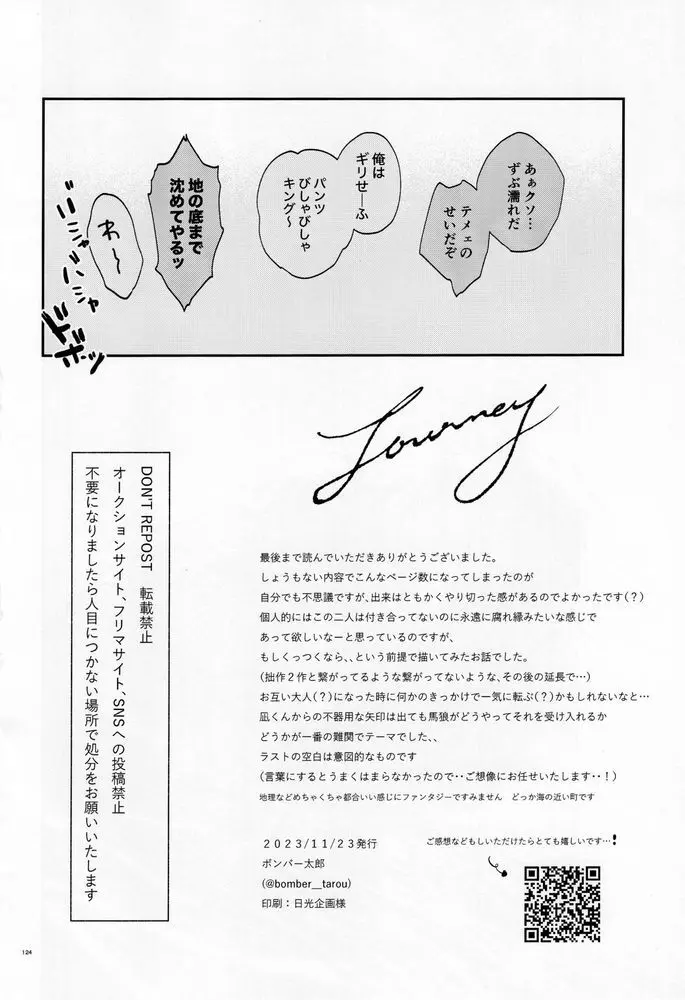 あぁクソ…
ずぶ濡れだ
テメェの
せいだぞ
俺は
ギリせーふ
パンツ
びしゃびしゃ
キング〜
地の底まで
沈めてやるッ
わ〜〜
バシャバシャ
ドボッ
Journey
最後まで読んでいただきありがとうございました。
しょうもない内容でこんなページ数になってしまったのが
自分でも不思議ですが、出来はともかくやり切った感があるのでよかったです(?)
個人的にはこの二人は付き合ってないのに永遠に腐れ縁みたいな感じで
あって欲しいなーと思っているのですが、
もしくっつくなら、、という前提で描いてみたお話でした。
(拙作2作と繋がってるような繋がってないような、その後の延長で…)
お互い大人(?)になった時に何かのきっかけで一気に転ぶ(?)かもしれないなと…
凪くんからの不器用な矢印は出ても馬狼がどうやってそれを受け入れるか
どうかが一番の難関でテーマでした、、
ラストの空白は意図的なものです
(言葉にするとうまくはまらなかったので・・ご想像にお任せいたします・・!)
地理などめちゃくちゃ都合いい感じにファンタジーですみません　どっか海の近い町です
2023/11/23発行
ボンバー太郎
(@bomber__tarou)
印刷：日光企画様
ご感想などもしいただけたらとても嬉しいです…!
DON'T REPOST　転載禁止
オークションサイト、フリマサイト、SNSへの投稿禁止
不要になりましたら人目につかない場所で処分をお願いいたします
124